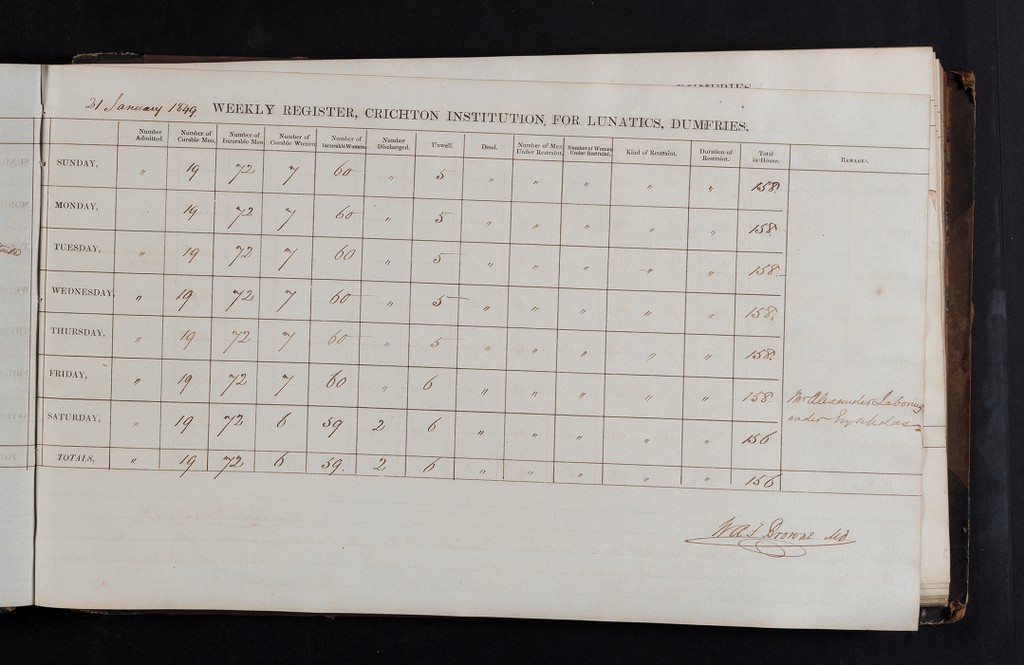 21 January 1849 WEEKLY REGISTER, CRICHTON INSTITUTION, FOR LUNATICS, DUMFRIES.
Number Admitted. Number of Curable Men. Number of Incurable Men. Number of Curable Women. Number of Incurable Women. Number Discharged. Unwell. Dead. Number of Men Under Restraint. Number of Women Under Restraint. Kind of Restraint. Duration of Restraint. Total in House. REMARKS.
SUNDAY, " 19 72 7 60 " 5 " " " " " 158
MONDAY, 19 72 7 60 " 5 " " " " " 158.
TUESDAY, " 19 72 7 60 " 5 " " " " " 158
WEDNESDAY, " 19 72 7 60 " 5 " " " " " 158.
THURSDAY, " 19 72 7 60 " 5 " " " " " 158.
FRIDAY, " 19 72 7 60 " 6 " " " " " 158 Mr Alexander Laboring
SATURDAY, " 19 72 6 59 2 6 " " " " " 156 under Erysipelas
TOTALS, " 19 72 6 59. 2 6 " " " " " 156
W A F Browne MD